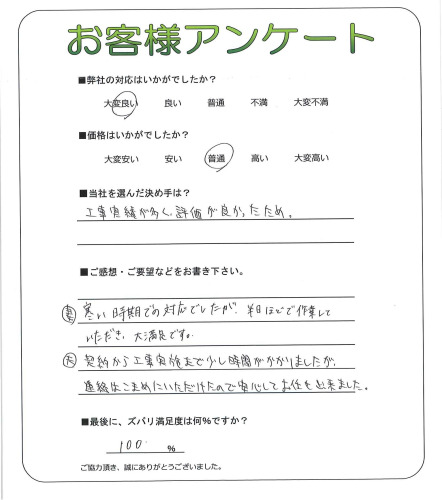 お客様アンケート
■弊社の対応はいかがでしたか？
大変良い 良い 普通 不満 大変不満
■価格はいかがでしたか？
大変安い 安い 普通 高い 大変高い
■当社を選んだ決め手は？
工事実績が多く、評価が良かったため。
■ご感想・ご要望などをお書き下さい。
寒い時期での対応でしたが、半日ほどで作業して
いただき、大満足です。
契約から工事実施まで少し時間がかかりましたが、
連絡はこまめにいただけたので安心してお任せ出来ました。
■最後に、ズバリ満足度は何%ですか？
100 %
ご協力頂き、誠にありがとうございました。